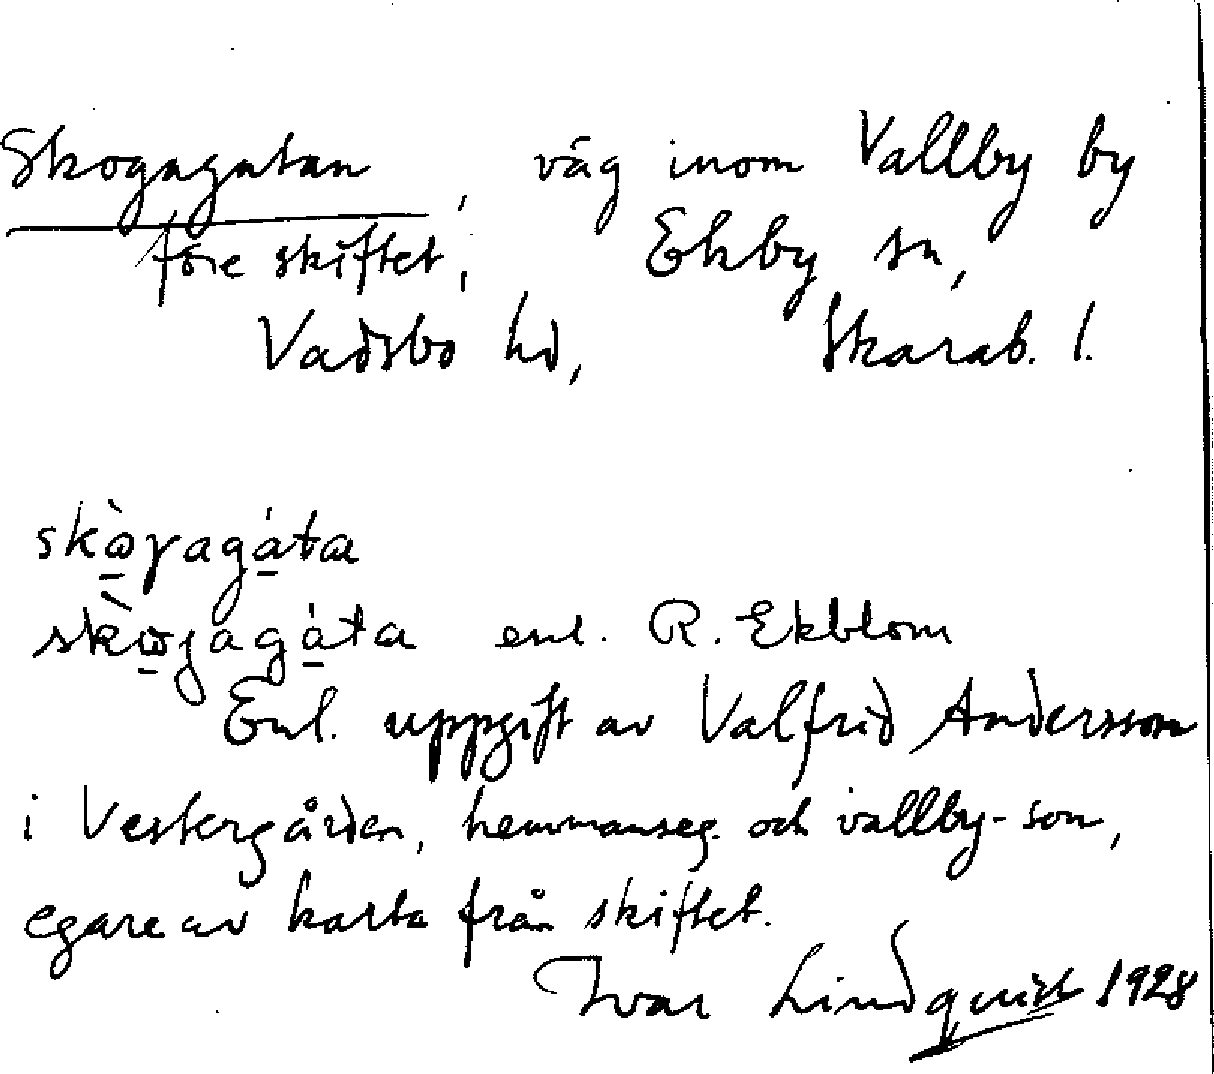 Skogagatan, väg inom Vallby by
före skiftet, Ekby sn,
Vadsbo hd, Skarab. l.
skὼ̱γagá̱ta
skὼ̱jagá̱ta enl. R. Ekblom
Enl. uppgift av Valfrid Andersson
i Vestergården, hemmanseg. och vallby-son,
egare av karta från skiftet.
Ivar Lindquist 1928